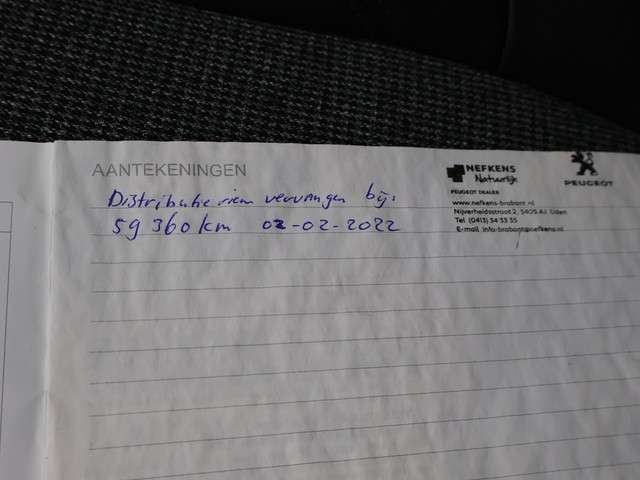 AANTEKENINGEN
Distributie riem vervangen bij:
59 360 km 02-02-2022
NEFKENS
Natuurlijk
PEUGEOT DEALER
www.nefkens-brabant.nl
Nijverheidsstraat 2, 5405 AJ Uden
Tel (0413) 34 33 35
E-mail info-brabant@nefkens.nl
PEUGEOT